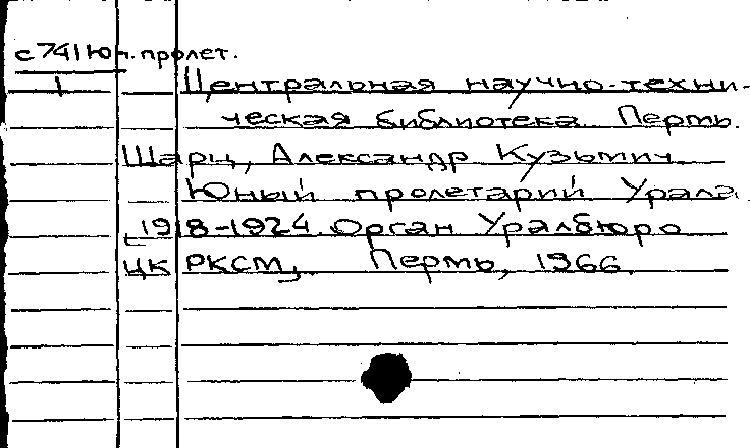 с741Юн.пролет.
1
Центральная научно-техни-
ческая библиотека. Пермь.
Шарц, Александр Кузьмич.
Юный пролетарий Урала.
[1918-1924. Орган Уралбюро
ЦК РКСМ]. Пермь, 1966.